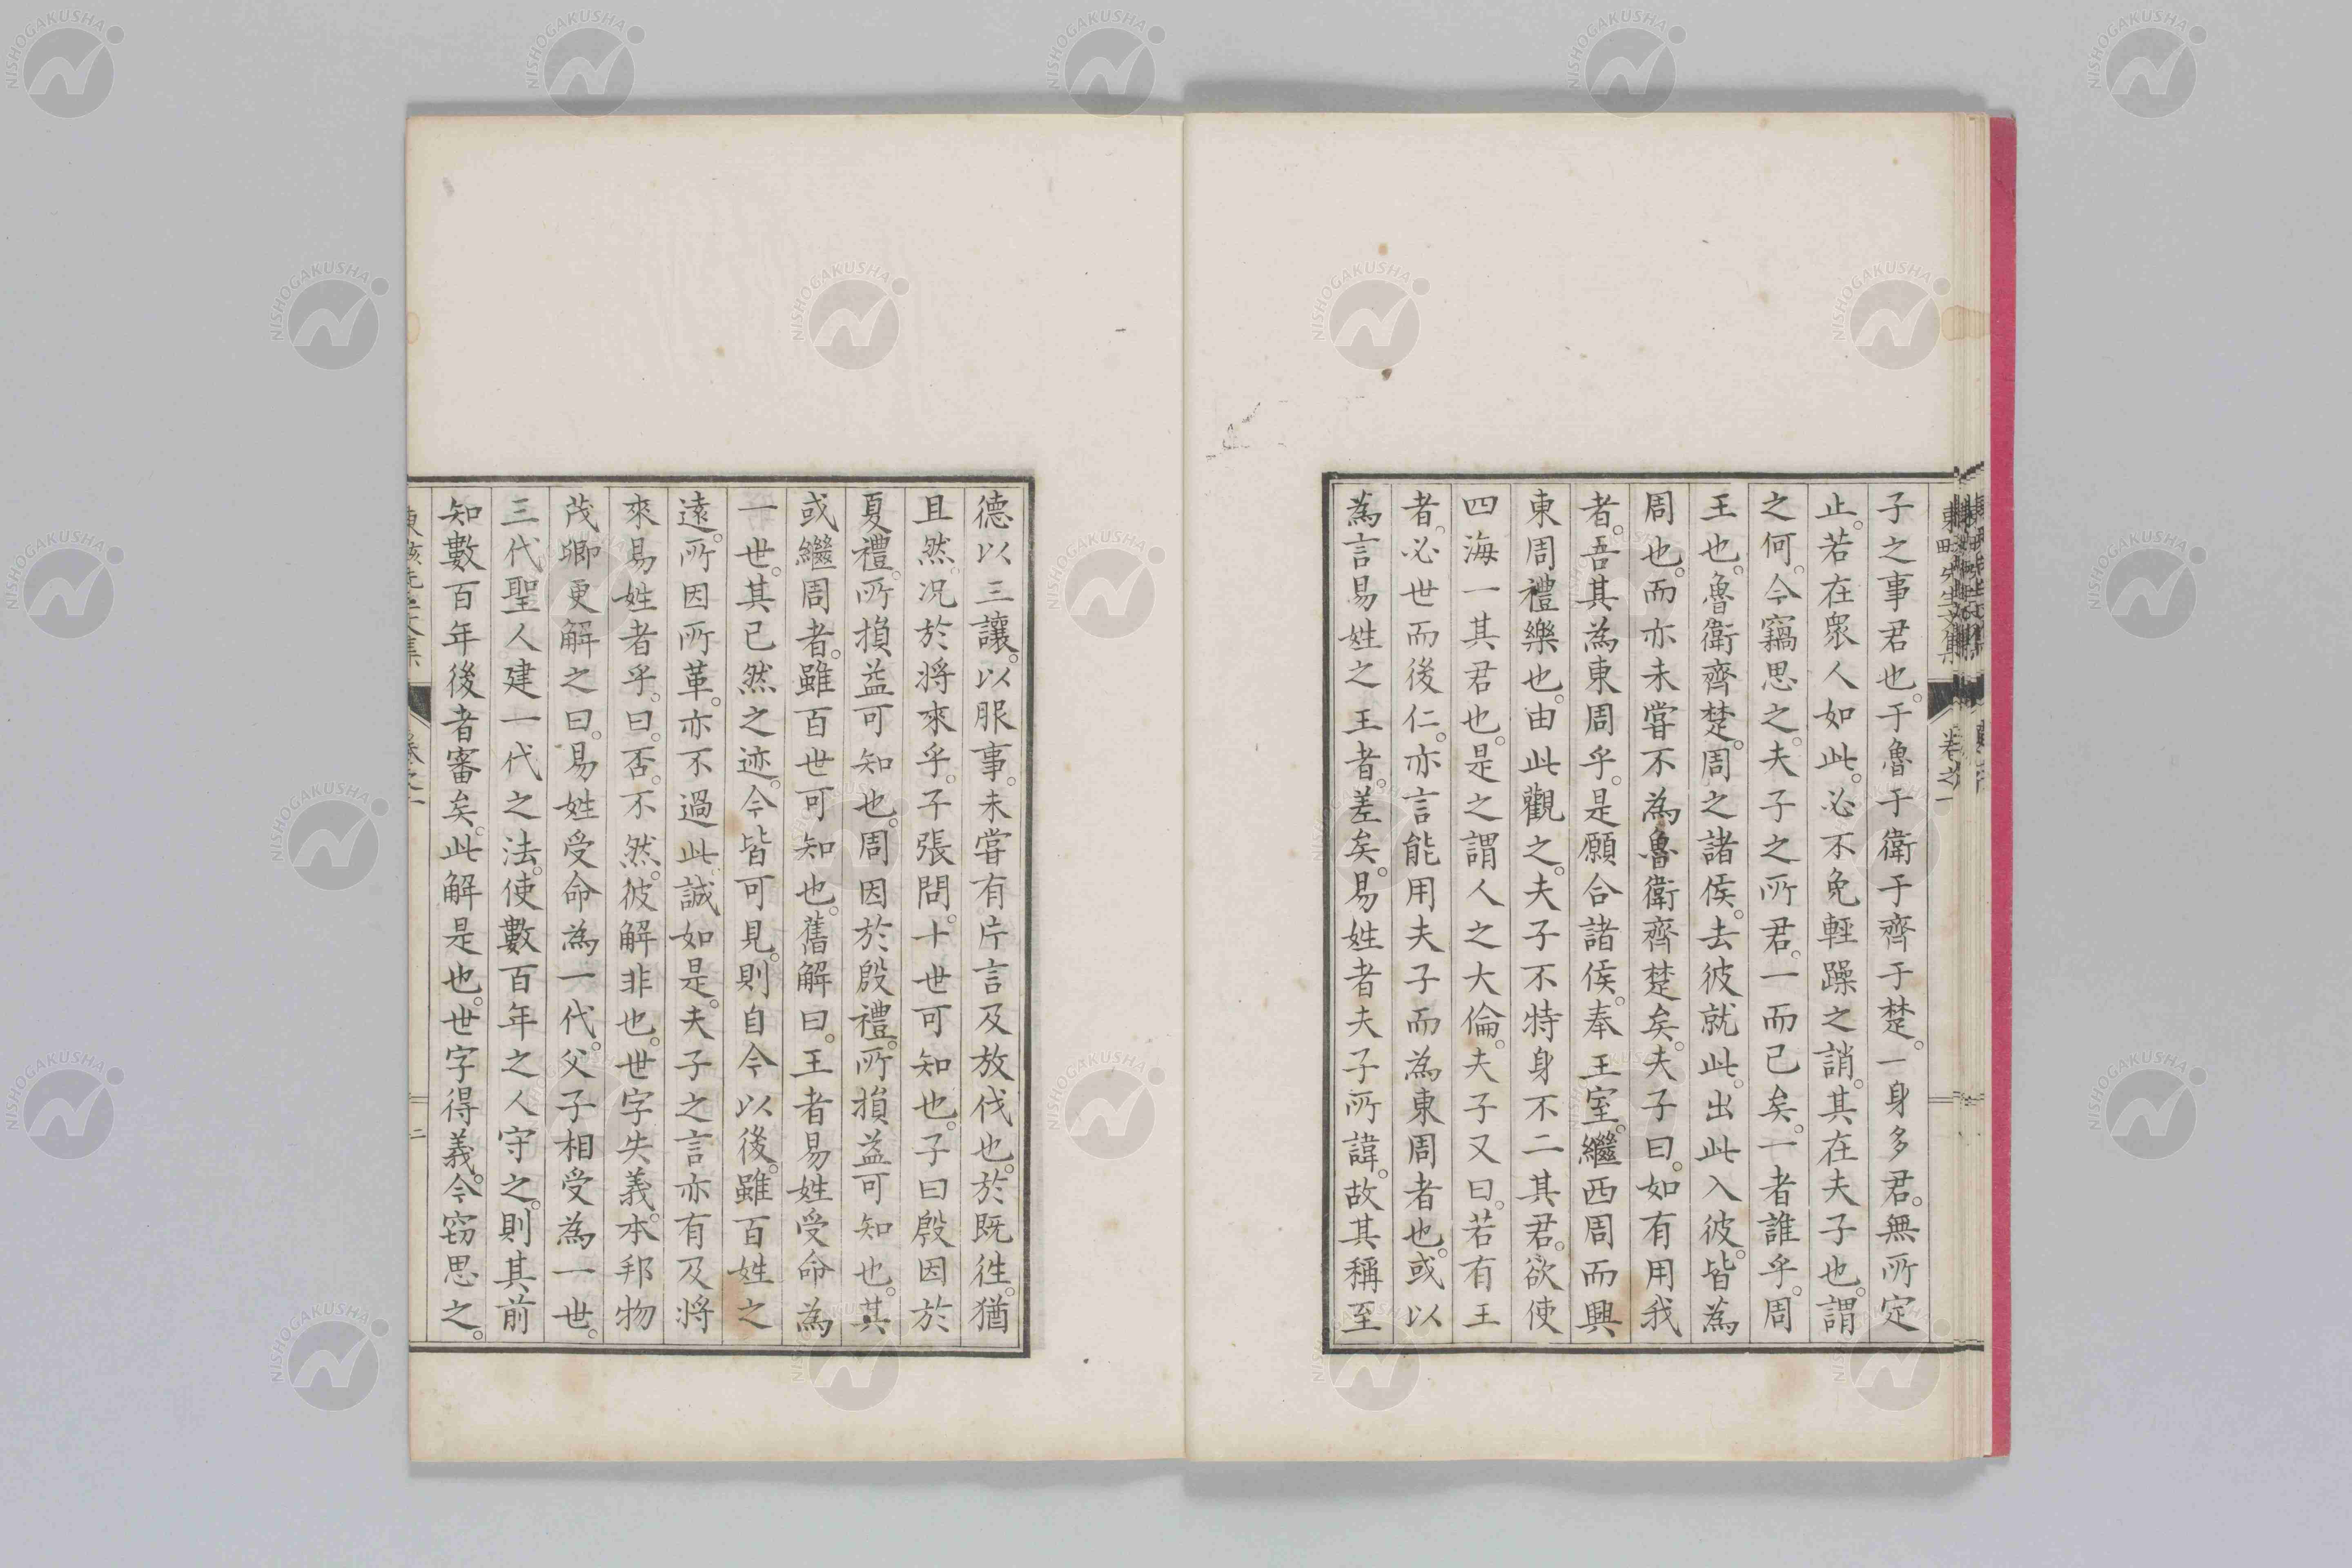 子之事君也。于魯于衛于齊于楚。一身多君。無所定
止。若在衆人如此。必不免輕躁之誚。其在夫子也。謂
之何。今竊思之。夫子之所君。一而已矣。一者誰乎。周
王也。魯衛齊楚。周之諸侯。去彼就此。出此入彼。皆為
周也。而亦未嘗不為魯衛齊楚矣。夫子曰。如有用我
者。吾其為東周乎。是願合諸侯。奉王室。繼西周而興
東周禮樂也。由此觀之。夫子不特身不二其君。欲使
四海一其君也。是之謂人之大倫。夫子又曰。若有王
者。必世而後仁。亦言能用夫子而為東周者也。或以
為言易姓之王者。差矣。易姓者夫子所諱。故其稱至
德以三讓。以服事。未嘗有片言及放伐也。於既徃。猶
且然。况於將來乎。子張問。十世可知也。子曰殷因於
夏禮。所損益可知也。周因於殷禮。所損益可知也。其
或繼周者。雖百世可知也。舊解曰。王者易姓受命為
一世。其已然之迹。今皆可見。則自今以後。雖百姓之
遠。所因所革。亦不過此。誠如是。夫子之言亦有及將
來易姓者乎。曰。否。不然。彼解非也。世字失義。本邦物
茂卿更解之曰。易姓受命為一代。父子相受為一世。
三代聖人建一代之法。使數百年之人守之。則其前
知數百年後者審矣。此解是也。世字得義。今窃思之。
卷之一
二
NISHOGAKUSHA